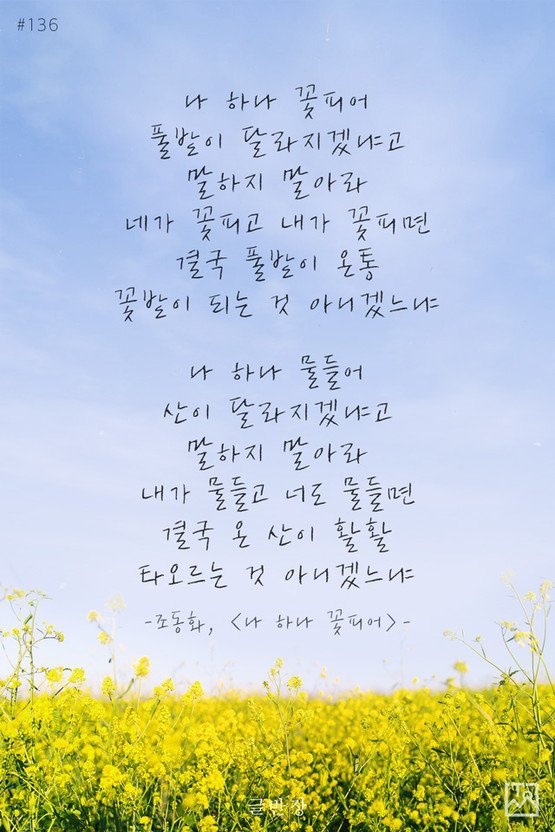 #136
나 하나 꽃피어
풀밭이 달라지겠냐고
말하지 말아라
네가 꽃피고 내가 꽃피면
결국 풀밭이 온통
꽃밭이 되는 것 아니겠느냐
나 하나 물들어
산이 달라지겠냐고
말하지 말아라
내가 물들고 너도 물들면
결국 온 산이 활활
타오르는 것 아니겠느냐
-조동화, <나 하나 꽃피어>-